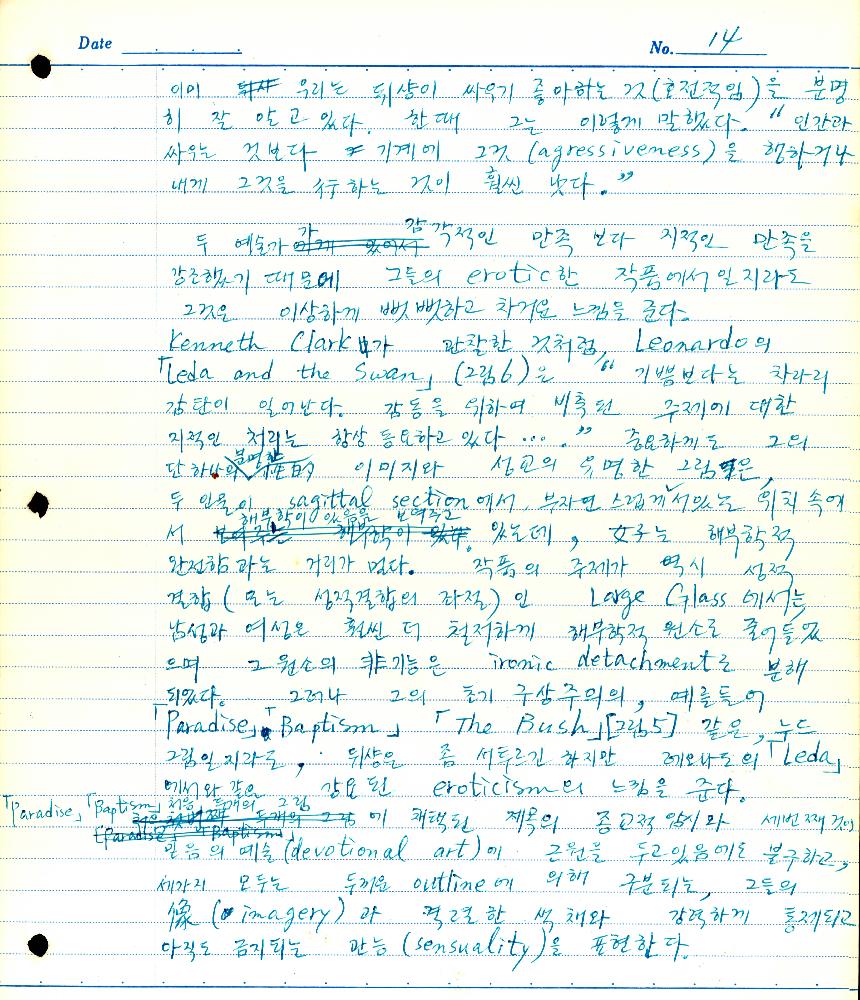 Date
No. 14
이미 우리는 뒤샹이 싸우기 좋아하는 것(호전적임)을 분명
히 잘 알고 있다. 한때 그는 이렇게 말했다. "인간과
싸우는 것보다 기계에 그것(agressiveness)을 행하거나
내게 그것을 行하는 것이 훨씬 낫다."
두 예술가가 감각적인 만족 보다 지적인 만족을
강조했기 때문에 그들의 erotic한 작품에서 일지라도
그것은 이상하게 뻣뻣하고 차거운 느낌을 준다.
Kenneth Clark가 관찰한 것처럼, Leonardo의
「Leda and the Swan」(그림6)은 "기쁨보다는 차라리
감탄이 일어난다. 감동을 위하여 비축된 주제에 대한
지적인 처리는 항상 동요하고 있다 ...." 중요하게도 그의
단 하나의 분명한 이미지와 성교의 유명한 그림은,
두 인물이 sagittal section에서, 부자연스럽게 서있는 위치 속에
서 해부학이 있음을 보여주고 있는데, 女子는 해부학적
완전함과는 거리가 멀다. 작품의 주제가 역시 성적
결합(또는 성적결합의 좌절)인 Large Glass에서는,
남성과 여성은 훨씬 더 철저하게 해부학적 원소로 줄어들었
으며 그 원소의 非기능은 ironic detachment로 분해
되었다. 그러나 그의 초기 구상주의의, 예를들어
「Paradise」, 「Baptism」 「The Bush」[그림5] 같은, 누드
그림일지라도, 뒤샹은 좀 서투르긴 하지만 레오나도의 「Leda」
에서와 같은 강요된 eroticism의 느낌을 준다.
「Paradise」 「Baptism」 처음 두개의 그림
에 채택된 제목의 종교적 암시와 세번째것이
믿음의 예술(devotional art)에 근원을 두고있음에도 불구하고,
세가지 모두는 두꺼운 outline에 의해 구분되는, 그들의
像(imagery)과 격렬한 색채와 강력하게 통제되고
아직도 금지되는 관능(sensuality)을 표현한다.